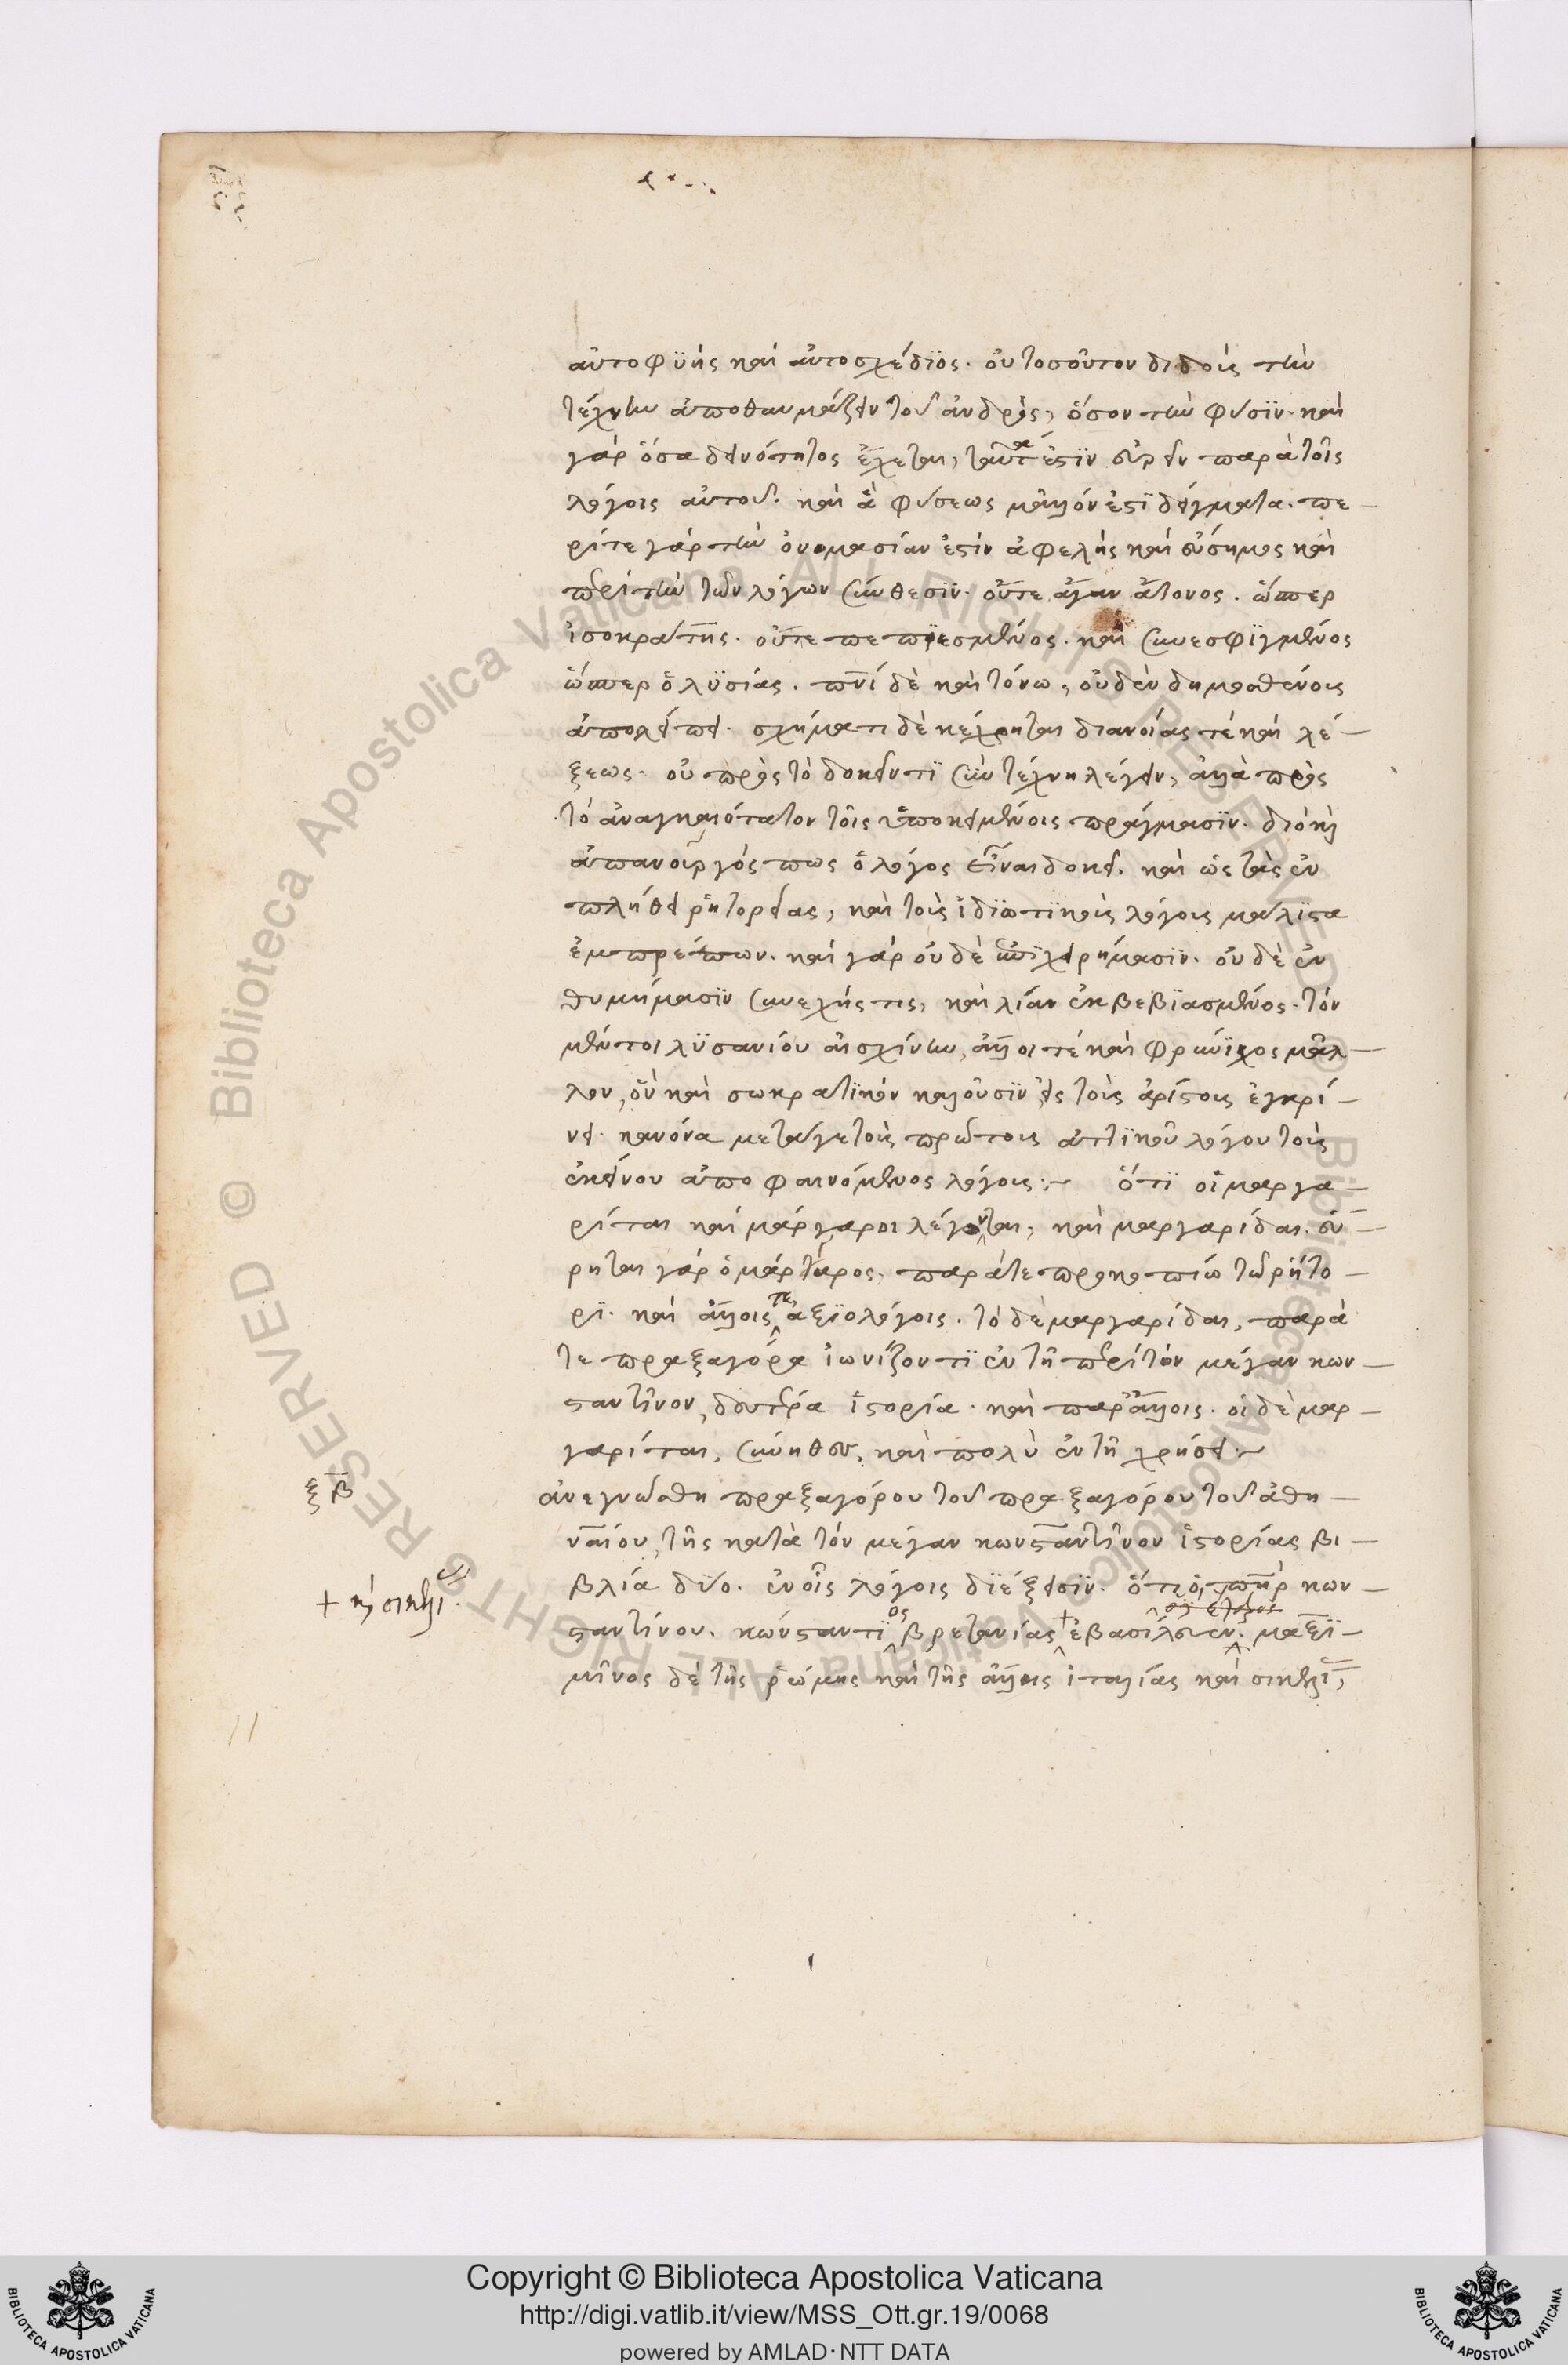 αὐτοφϋὴς καὶ αὐτοσχέδϊος. οὐ τοσοῦτον διδοὺς τὴν
τέχνην ἀποθαυμάζειν τοῦ ἀνδρός, ὅσον τὴν φύσϊν. καὶ
γὰρ ὅσα δεινότητος ἔχεται, ταῦτα ἐστϊν εὑρεῖν παρὰ τοῖς
λόγοις αὐτοῦ. καὶ ἃ φύσεως μᾶλλόν ἐστϊ δείγματα. πε-
ρί τε γὰρ τὴν ὀνομασίαν ἐστὶν ἀφελὴς καὶ εὔσημος καὶ
περὶ τὴν τῶν λόγων σύνθεσϊν. οὔτε ἄγαν ἄτονος. ὥσπερ
ἰσοκράτης. οὔτε πεπϊεσμένος. καὶ συνεσφϊγμένος
ὥσπερ ὁ λϋσίας. πνϊ δὲ καὶ τόνω, οὐδὲν δημοσθένους
ἀπολείπει. σχήματι δὲ κέχρηται διανοίας τέ καὶ λέ-
ξεως. οὐ πρὸς τὸ δοκεῖν τϊ σὺν τέχνη λέγειν, ἀλλὰ πρὸς
τὸ ἀναγκαιότατον τοῖς ὑποκειμένοις πράγμασϊν. διὸ καὶ
ἀπανοῦργός πως ὁ λόγος εἶναι δοκεῖ. καὶ ὡς τὰς ἐν
πλήθει ῥητορείας, καὶ τοὺς ἰδϊωτϊκοὺς λόγους μάλϊστα
ἐμπρέπων. καὶ γὰρ οὐδὲ ἐπϊχειρήμασϊν. οὐδὲ ἐν
θυμήμασϊν συνεχής τις, καὶ λίαν ἐκβεβϊασμένος. τὸν
μέντοι λϋσανίου αἰσχίνην, ἄλλοι τέ καὶ φρύνϊχος μᾶλ-
λον, ὃν καὶ σωκρατϊκὸν καλοῦσϊν εἰς τοὺς ἀρίστους ἐγκρί-
νει. κανόνα μετά γε τοὺς πρώτους ἀττϊκοῦ λόγου τοὺς
ἐκείνου ἀποφαινόμενος λόγους:~ ὅτϊ οἱ μαργα-
ρίται καὶ μάργαροι λέγονται, καὶ μαργαρίδαι. εὕ-
ρηται γὰρ ὁ μάργαρος. παρά τε προκοπίω τῶ ῥήτο-
ρϊ. καὶ ἄλλοις τε ἀξϊολόγοις. τὸ δὲ μαργαρίδαι, παρά
τε πραξαγόρα ἰωνίζοντϊ ἐν τῆ περὶ τὸν μέγαν κων-
σταντῖνον, δευτέρα ἱστορία. καὶ παρ' ἄλλοις. οἱ δὲ μαρ-
γαρίται, σύνηθες, καὶ πολὺ ἐν τῆ χρήσει:~
ξβ ἀνεγνώσθη πραξαγόρου τοῦ πραξαγόρου τοῦ ἀθη-
ναίου, τῆς κατὰ τὸν μέγαν κωνσταντῖνον ἱστορίας βι-
βλία δύο. ἐν οἷς λόγοις δϊέξεισϊν. ὅτι ὁ πατὴρ κων-
+ καὶ σικελι.
σταντίνου. κώνσταντϊος βρετανίας + ἐβασίλευεν. μαξϊ-
μῖνος δὲ τῆς ῥώμης καὶ τῆς ἄλλης ἰταλίας καὶ σικελϊ,